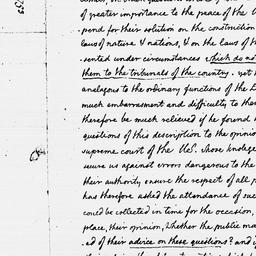 of greater importance to the peace of the
pend for their solution on the construction
laws of nature & nations, & on the laws of the
sented under circumstances which do not
them to the tribunals of the country. yet
analogous to the ordinary functions of the
much embarrasment and difficulty to them
therefore be much relieved if he found
questions of this description to the opinion
supreme court of the U.S. whose knolege
secure us against errors dangerous to the
their authority ensure the respect of all
has therefore asked the attendance of such
could be collected in time for the occasion,
place, their opinion, whether the public may
ed of their advice on these questions? and